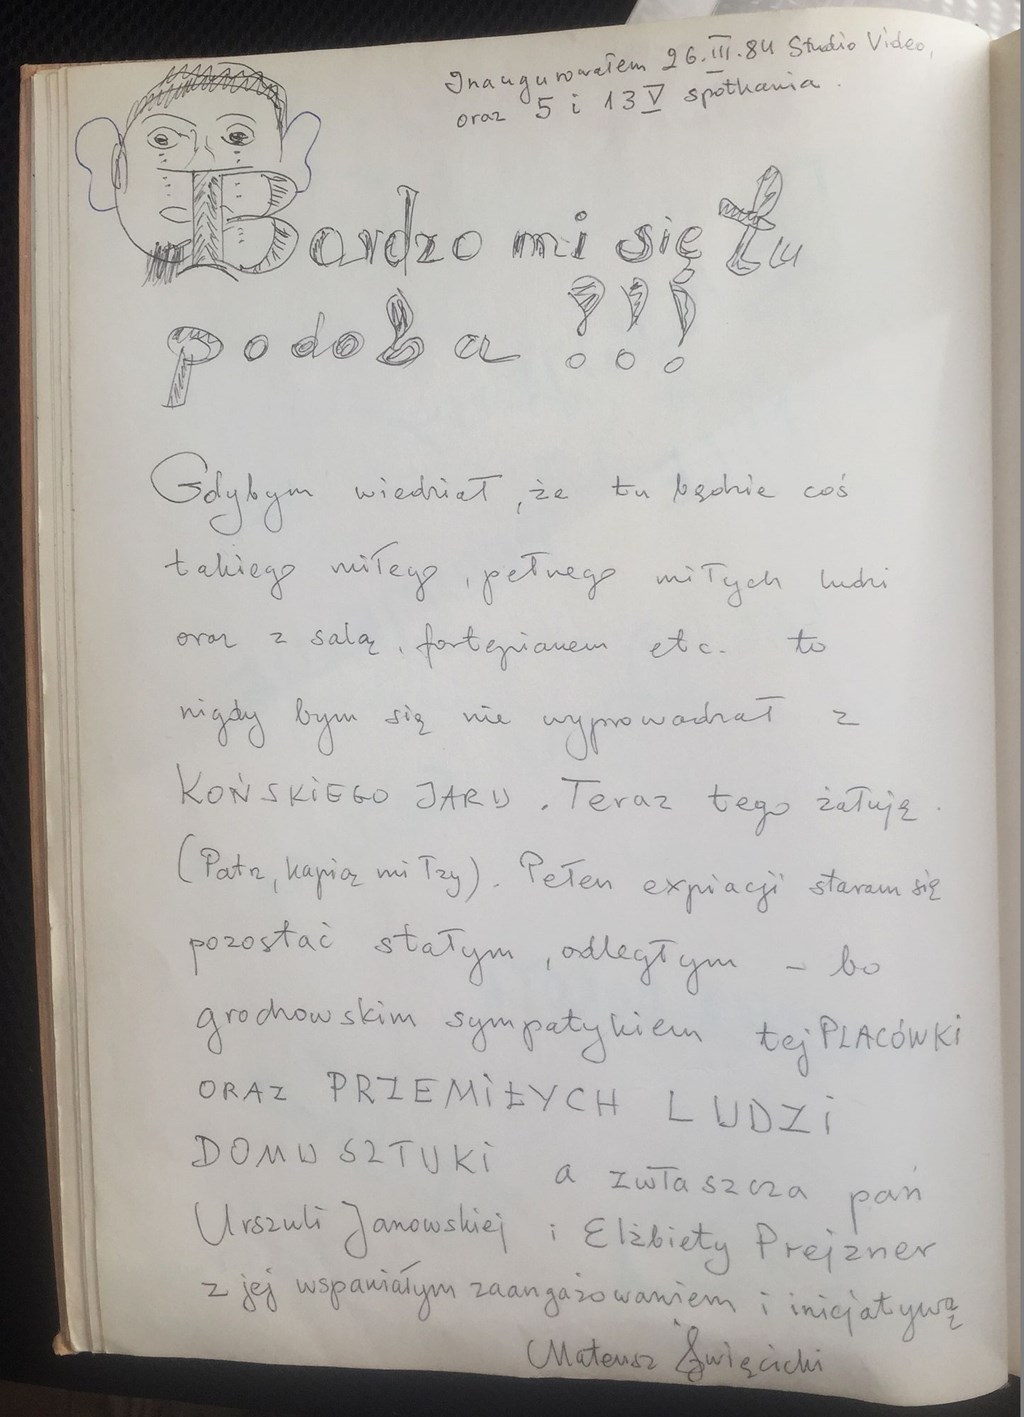 Inaugurowałem 26.III.84 Studio Video,
oraz 5 i 13 V spotkania.
Bardzo mi się tu
podoba !!!
Gdybym wiedział, że tu będzie coś
takiego miłego, pełnego miłych ludzi
oraz z salą, fortepianem etc. to
nigdy bym się nie wyprowadzał z
KOŃSKIEGO JARU. Teraz tego żałuję.
(Patrz, kapią mi łzy). Pełen expiacji staram się
pozostać stałym, odległym – bo
grochowskim sympatykiem tej PLACÓWKI
ORAZ PRZEMIŁYCH LUDZI
DOMU SZTUKI a zwłaszcza pań
Urszuli Janowskiej i Elżbiety Prejzner
z jej wspaniałym zaangażowaniem i inicjatywą
Mateusz Święcicki